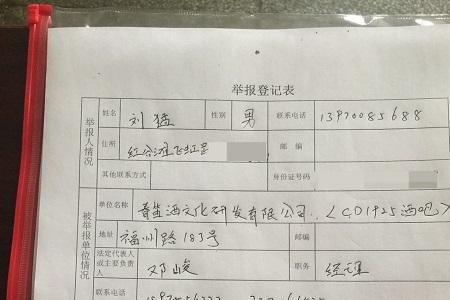 举报登记表
举报人情况
姓名 刘猛 性别 男 联系电话 13970085688
住所 红谷滩 邮编
其他联系方式 身份证号码
被举报单位情况
单位名称 有限公司 (CO1925酒吧)
地址 福州路183号 邮编
法定代表人或主要负责人 邓峻 职务 经理
联系电话